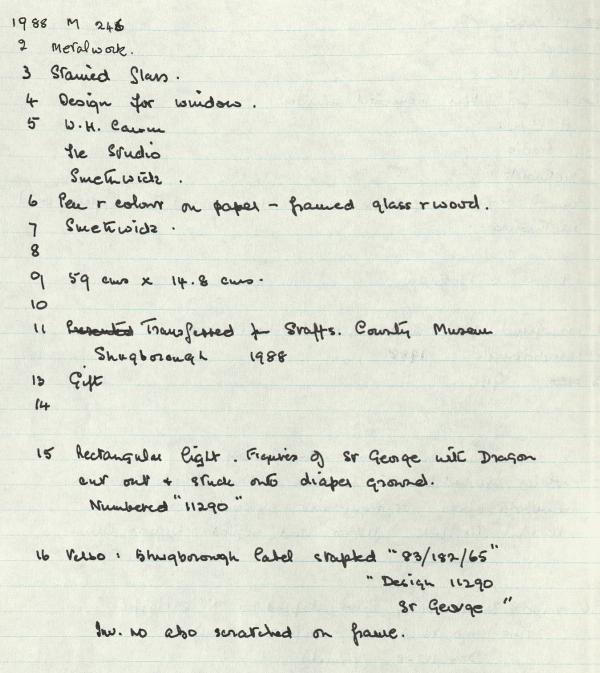 1988 M 246
2 Metalwork.
3 Stained Glass.
4 Design for window.
5 W.H.
The Studio
Smethwick.
6 Pen & colour on paper - framed glass & wood.
7 Smethwick.
8
9 59 cms x 14.8 cms.
10
11 Presented Transferred fr Staffs. County Museum
Shugborough 1988
13 Gift
14
15 Rectangular light. Figures of St George with Dragon
cut out & stuck onto diaper ground.
Numbered "11290"
16 Verso: Shugborough label stapled "83/182/65"
"Design 11290
St George"
Inv. no also scratched on frame.